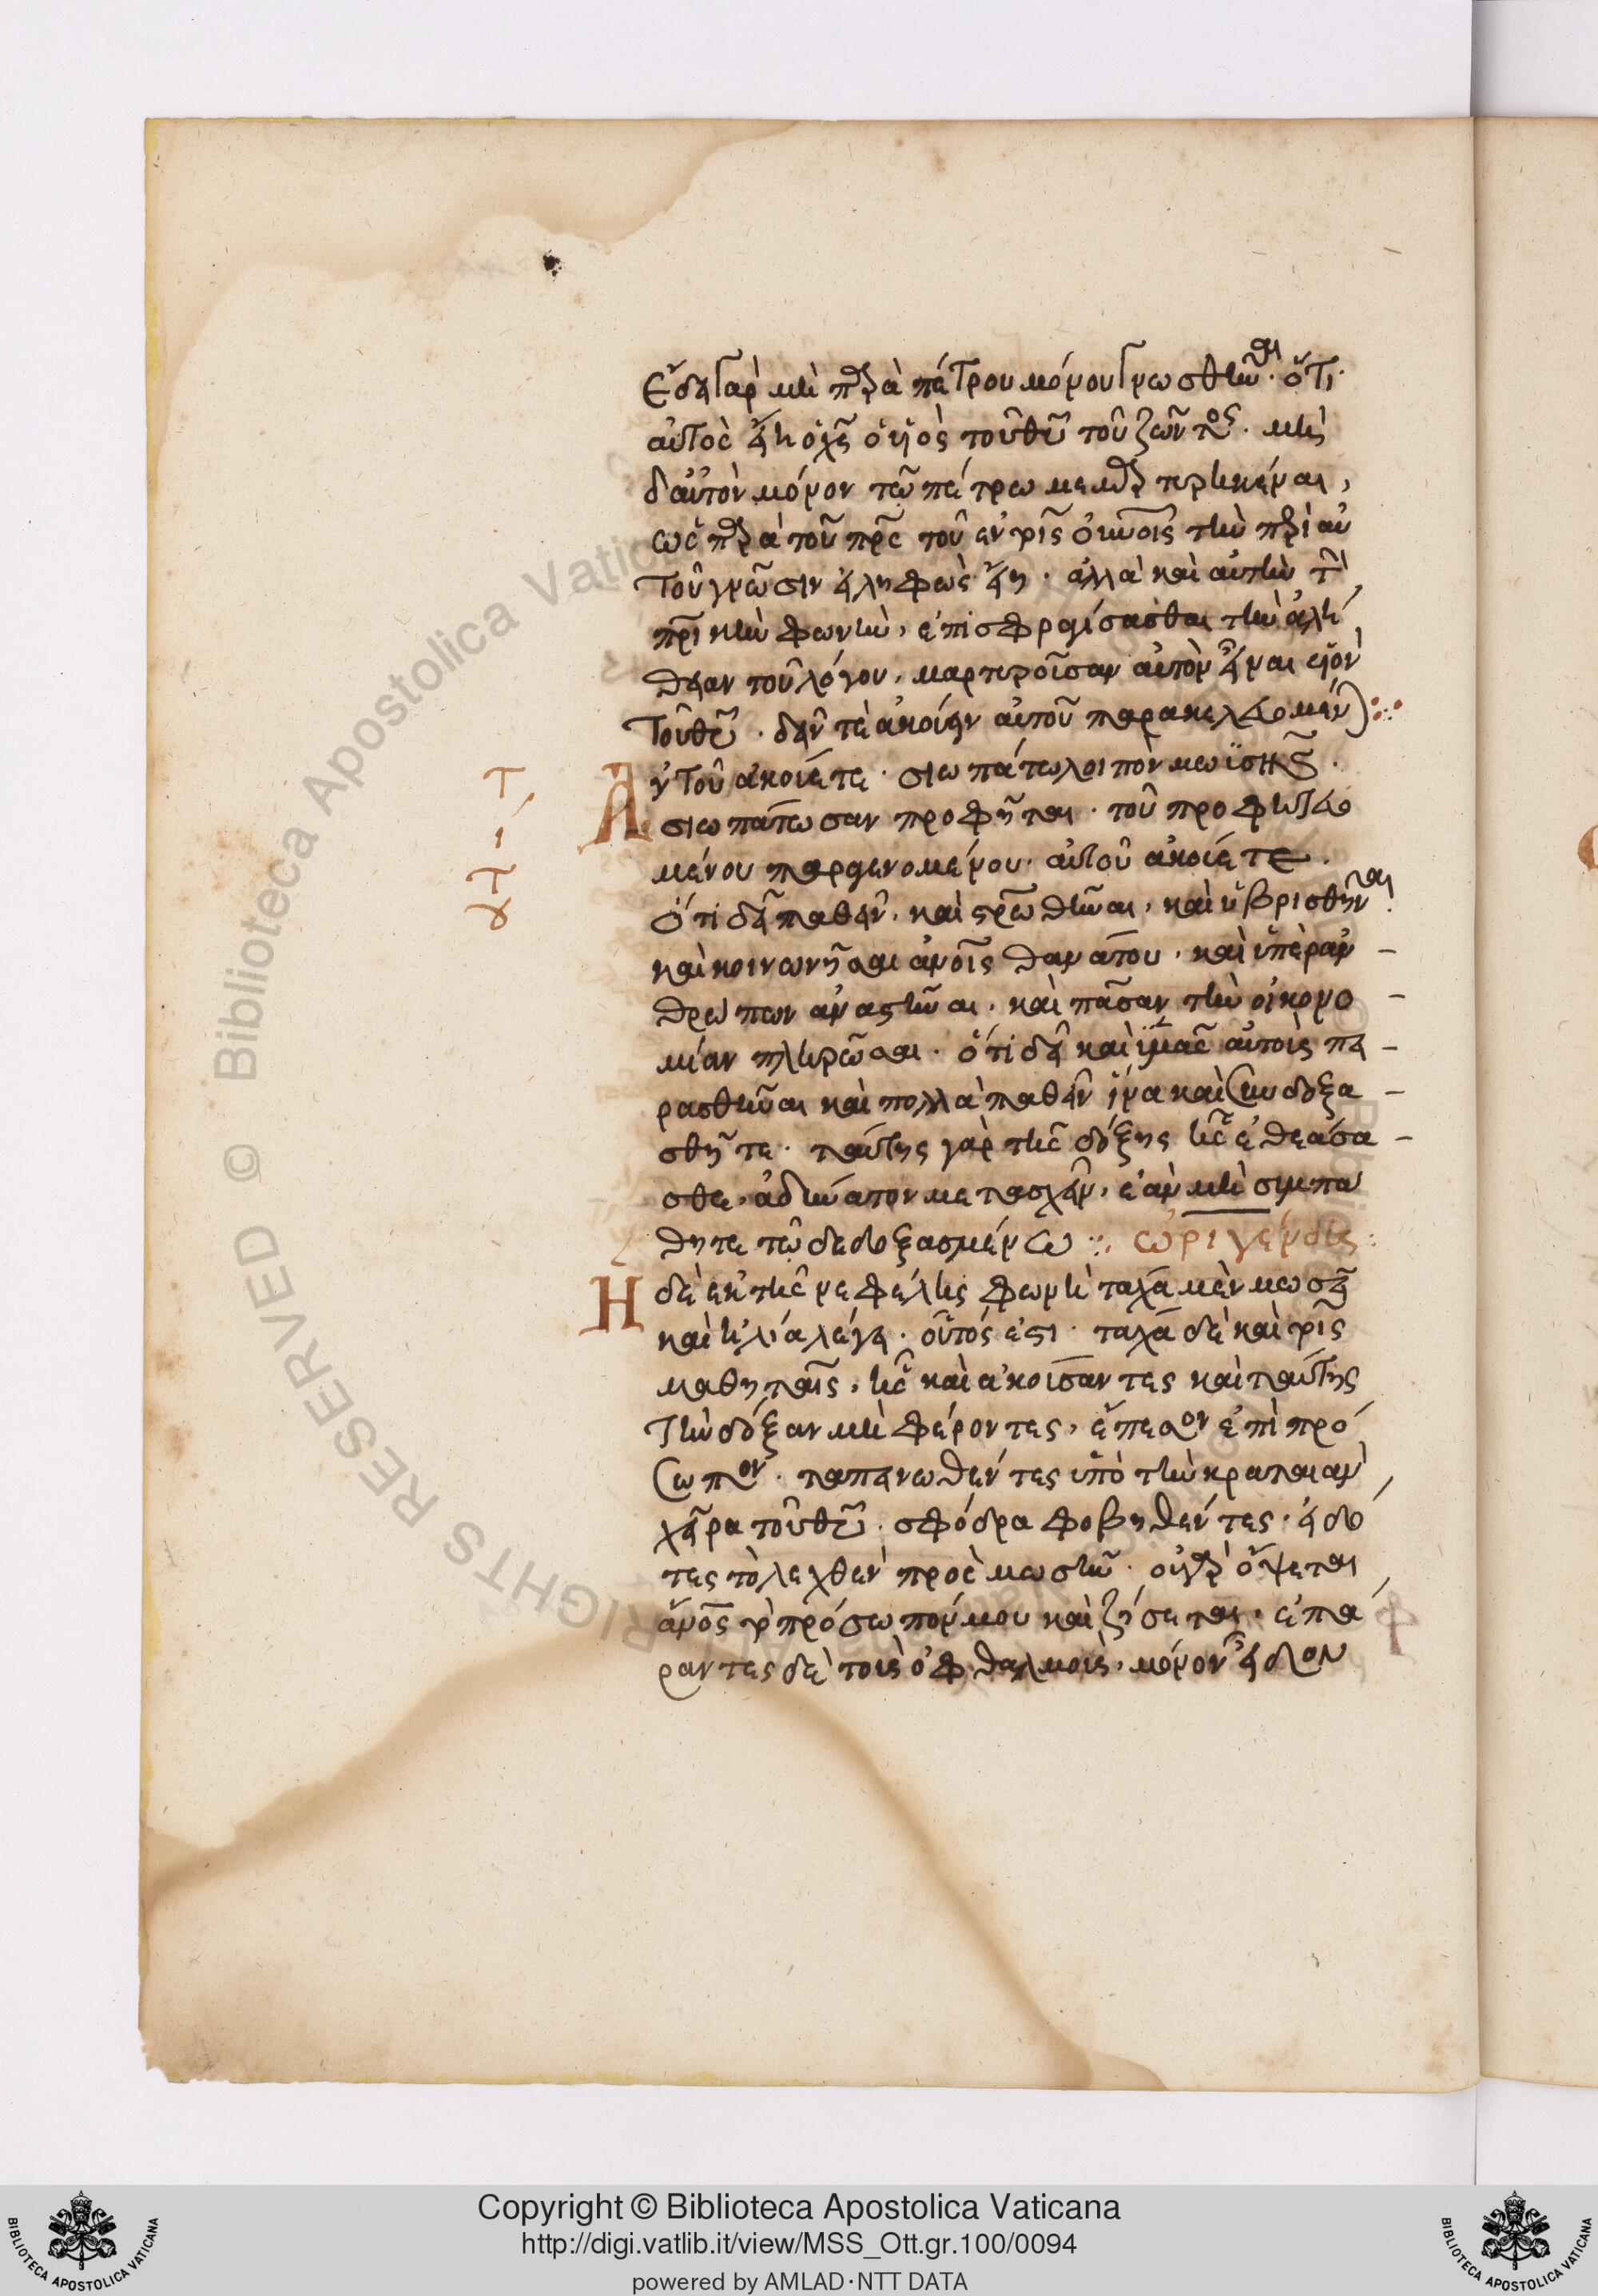 Ἔδει γὰρ μὴ παρὰ πέτρου μόνου γνωσθῆναι· ὅτι
αὐτὸς εἴη ὁ χς ὁ υἱὸς τοῦ θυ τοῦ ζῶντος. μὴ
δ' αὐτὸν μόνον τῶ πέτρω μεμαρτυρηκέναι,
ὡς παρὰ τοῦ πρς τοῦ ἐν τοῖς οὐνοῖς τὴν περὶ αὐ
τοῦ γνῶσιν εἰληφὼς εἴη. ἀλλὰ καὶ αὐτὴν τὴν
πρικὴν φωνὴν, ἐπισφραγίσασθαι τὴν ἀλή
θειαν τοῦ λόγου, μαρτυροῦσαν αὐτὸν εἶναι υἱὸν
τοῦ θυ. δεῖν τὲ ἀκούειν αὐτοῦ παρακελευομένην
Αὐτοῦ ἀκούετε· σιωπάτω λοιπὸν μωϋσῆς.
σιωπάτωσαν προφῆται· τοῦ προφητευο
μένου παραγενομένου· αὐτοῦ ἀκούετε.
ὅτι δεῖ παθεῖν, καὶ στρωθῆναι, καὶ ὑβρισθῆναι
καὶ κοινωνῆσαι ἀνοῖς θανάτου, καὶ ὑπὲρ ἀν-
θρώπων ἀναστῆναι, καὶ πᾶσαν τὴν οἰκονο-
μίαν πληρῶσαι. ὅτι δεῖ καὶ ὑμᾶς αὐτοὺς πει-
ρασθῆναι καὶ πολλὰ παθεῖν ἵνα καὶ συνδοξα-
σθῆτε. ταύτης γὰρ τῆς δόξης ἧς ἐθεάσα-
σθε, ἀδύνατον μετασχεῖν, ἐὰν μὴ συμπά
θητε τῶ δεδοξασμένω ὠριγένους
Ἡ δὲ ἐκ τῆς νεφέλης φωνὴ τάχα μὲν μωσεῖ
καὶ ἠλία λέγει. οὗτός ἐστι. τάχα δὲ καὶ τοῖς
μαθηταῖς, ἧς καὶ ἀκούσαντες καὶ ταύτης
τὴν δόξαν μὴ φέροντες, ἔπεσον ἐπὶ πρό
σωπον. ταπεινωθέντες ὑπὸ τὴν κραταιὰν
χεῖρα τοῦ θυ. σφόδρα φοβηθέντες. εἰδό
τες τὸ λεχθὲν πρὸς μωσῆν. οὐ γὰρ ὄψεται
ἄνος τὸ πρόσωπόν μου καὶ ζήσεται. ἐπά
ραντες δὲ τοὺς ὀφθαλμοὺς, μόνον εἶδον
Copyright © Biblioteca Apostolica Vaticana
http://digi.vatlib.it/view/MSS_Ott.gr.100/0094
powered by AMLAD·NTT DATA